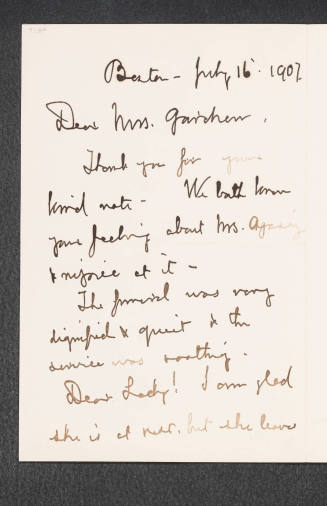 Boston - July 16. 1907
Dear Mrs. Gardner,
Thank you for your
kind note - We both know
your feeling about Mrs. Agassiz
& rejoice at it -
The funeral was very
dignified & quiet & the
service was soothing.
Dear Lady! I am glad
she is at rest, but she leaves